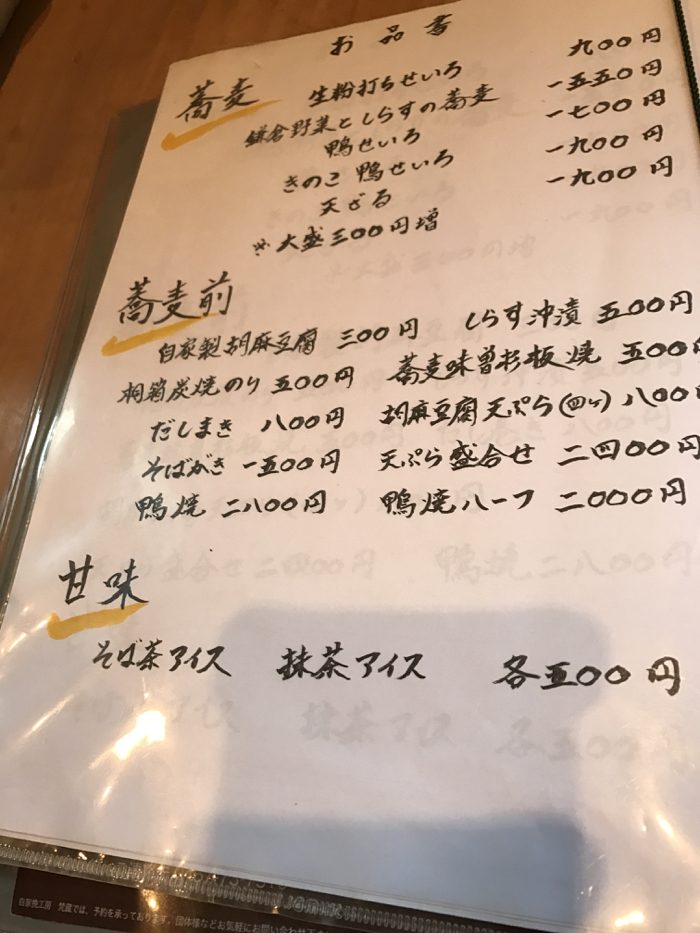 お品書
蕎麦
生粉打ちせいろ 九〇〇円
鎌倉野菜としらすの蕎麦 一五五〇円
鴨せいろ 一七〇〇円
きのこ鴨せいろ 一九〇〇円
天ざる 一九〇〇円
※大盛三〇〇円増
蕎麦前
自家製胡麻豆腐 三〇〇円 しらす沖漬 五〇〇円
桐箱炭焼のり 五〇〇円 蕎麦味噌杉板焼 五〇〇
だしまき 八〇〇円 胡麻豆腐天ぷら(四ヶ) 八〇〇
そばがき 一五〇〇円 天ぷら盛合せ 二四〇〇円
鴨焼 二八〇〇円 鴨焼ハーフ 二〇〇〇円
甘味
そば茶アイス 抹茶アイス 各五〇〇円
自家挽工房 梵蔵では、予約を承っております。団体様などお気軽にお問い合わせ下